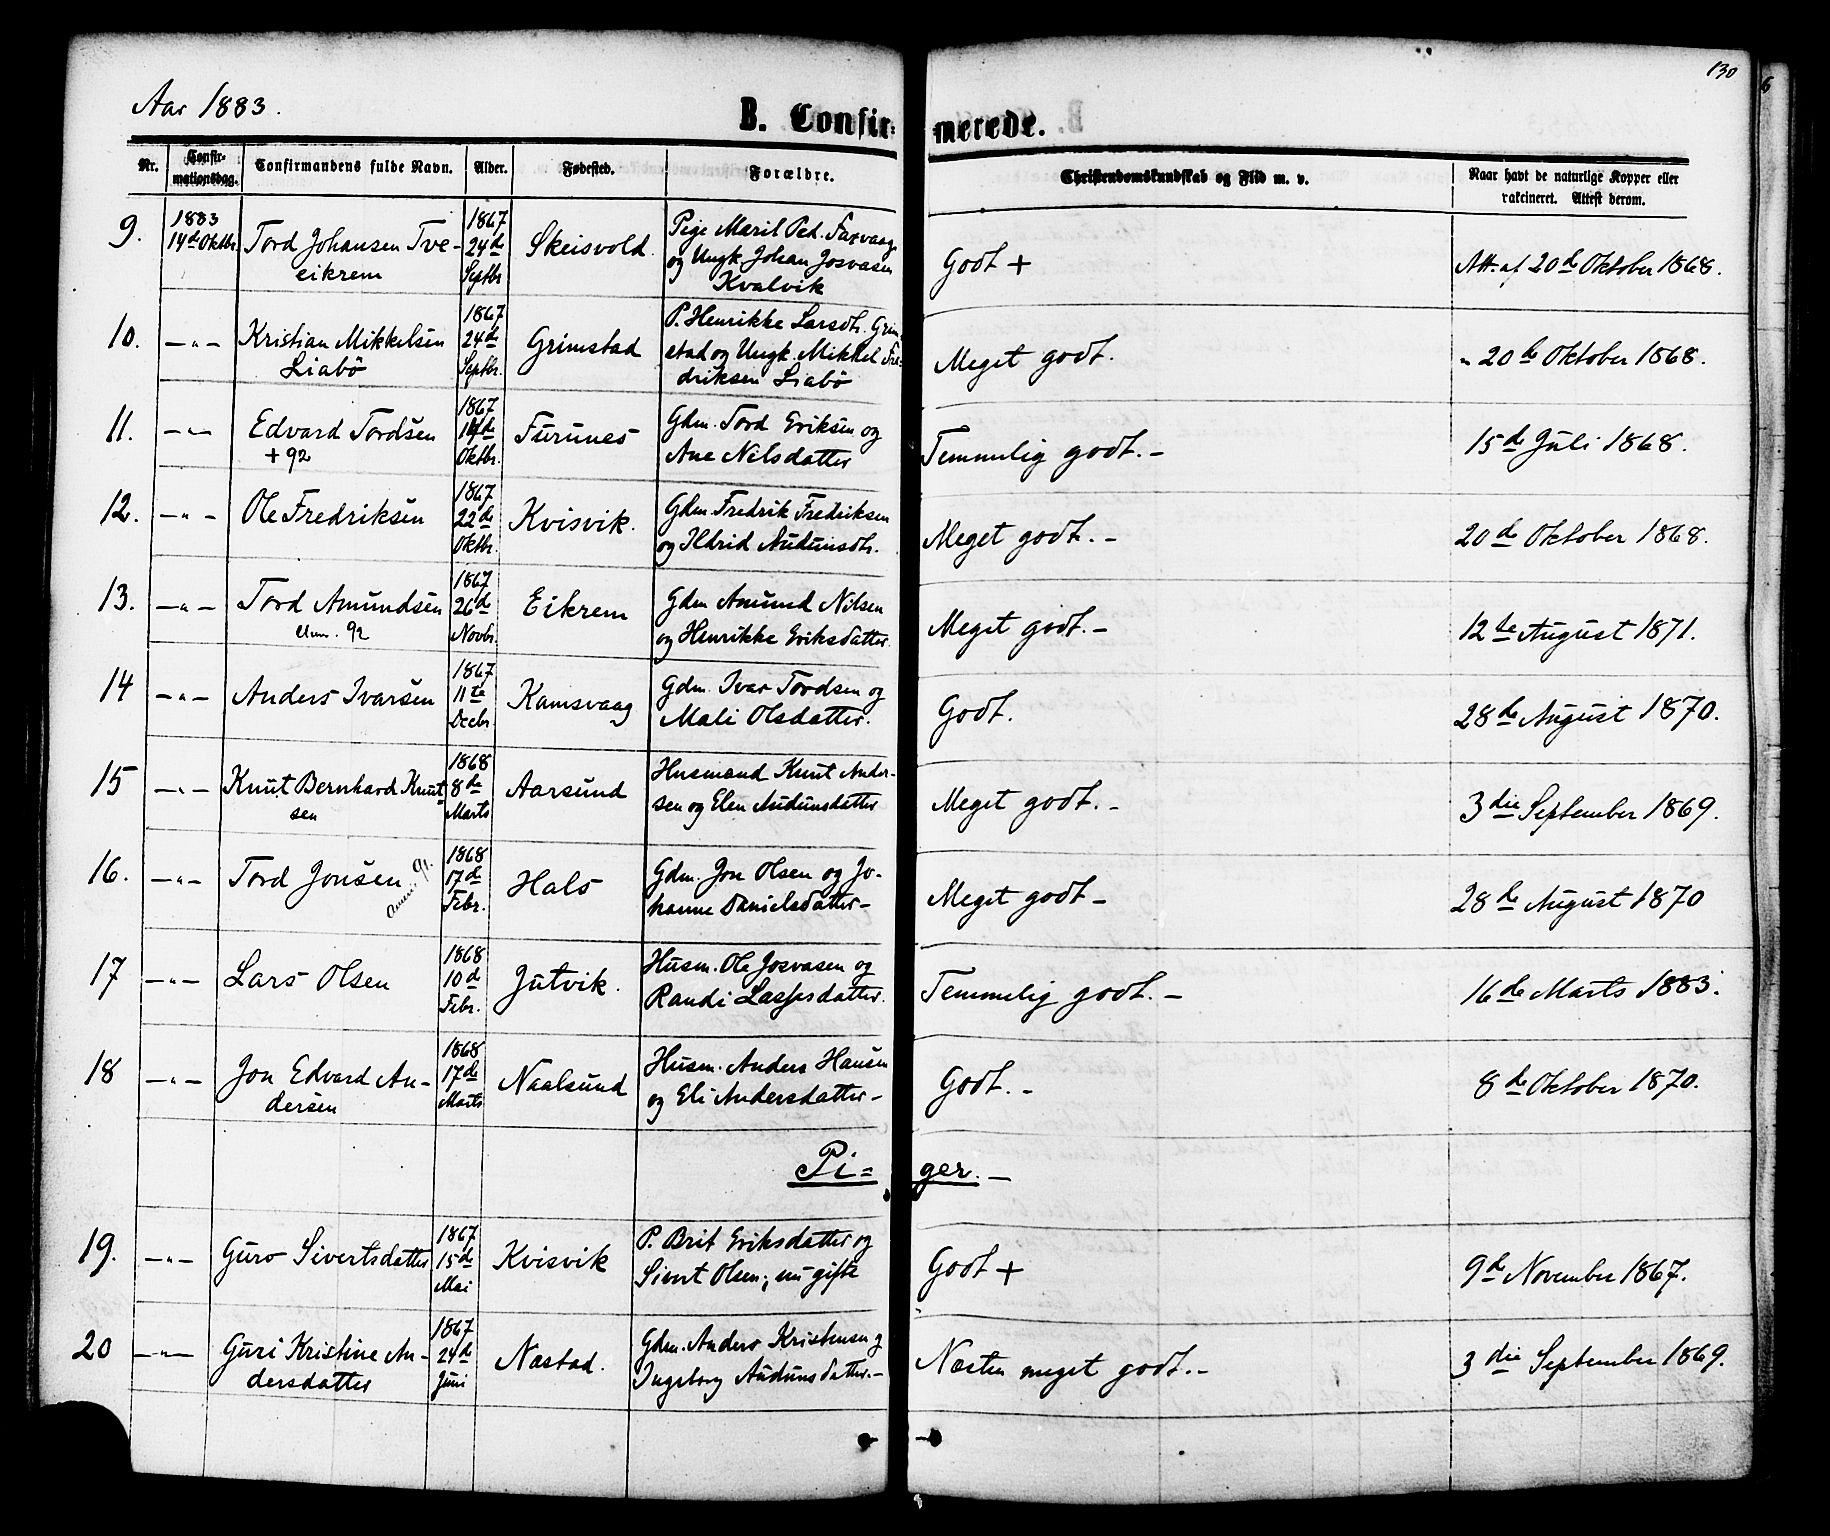 130
Aar 1883.
B. Confirmerede.
Nr. Confirmationsdag. Confirmandens fulde Navn. Alder. Fødested. Forældre. Christendomskundskab og Flid m. v. Naar havt de naturlige Kopper eller vakcineret. Attest derom.
9. 1883 14de Oktbr. Tord Johansen Tveeikrem 1867 24de Septbr Skeisvold. Pige Maril Ped. Farvaag og Ungk. Johan Josvasen Kvalvik Godt + Att. af 20de Oktober 1868.
10. —"— Kristian Mikkelsen Liabö 1867 24de Septbr. Grimstad P. Henrikke Larsdtr. Grimstad og Ungk. Mikkel Fredriksen Liabö Meget godt. " 20de Oktober 1868.
11. —"— Edvard Tordsen + 92 1867 Oktbr. Furunes Gdm. Tord Eriksen og Ane Nilsdatter Temmelig godt. — 15de Juli 1868.
12. —"— Ole Fredriksen 1867 22de Oktbr. Kvisvik. Gdm. Fredrik Fredriksen og Ildrid Audunsdtr. Meget godt. — 20de Oktober 1868.
13. —"— Tord Amundsen 92 1867 26de Novbr. Eikrem Gdm Amund Nilsen og Henrikke Eriksdatter Meget godt. — 12te August 1871.
14 —"— Anders Ivarsen 1867 11te Decbr. Kamsvaag Gdm. Ivar Tordsen og Mali Olsdatter. Godt. 28de August 1870.
15 —"— Knut Bernhard Knutsen 1868 8de Marts Aarsund Husmand Knut Andersen og Elen Audunsdatter Meget godt. — 3die September 1869.
16. —"— Tord Jonsen 91. 1868 17de Febr. Hals Gdm. Jon Olsen og Johanne Danielsdatter — Meget godt — 28de August 1870
17 —"— Lars Olsen 1868 10d Febr. Jutvik. Husm. Ole Josvasen og Randi Lassesdatter. Temmelig godt. — 16de Marts 1883.
18 —"— Jon Edvard Andersen 1868 17de Marts Naalsund Husm. Anders Hansen og Eli Andersdatter — Godt. — 8de Oktober 1870.
Piger. —
19. —"— Guro Sivertsdatter 1867 15de Mai Kvisvik P. Brit Eriksdatter og Sivert Olsen; nu gifte Godt + 9de November 1867.
20 —"— Guri Kristine Andersdatter 1867 24de Juni Nastad. Gdm. Anders Kristensen og Ingeborg Audunsdatter. — Næsten meget godt. — 3die September 1869.